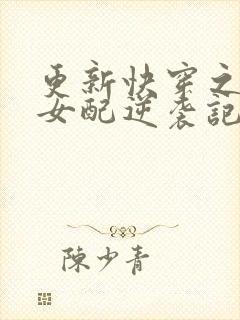 更新快穿之
女配逆袭記
陳少青